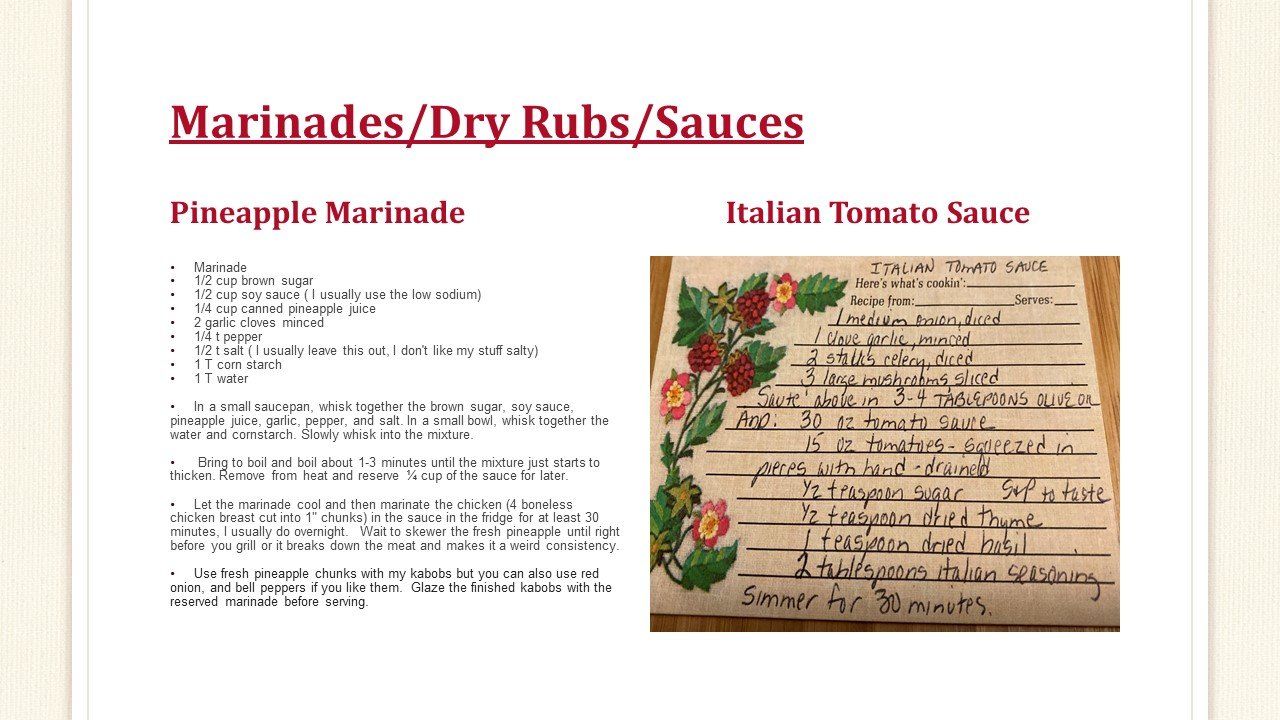 Marinades/Dry Rubs/Sauces
Pineapple Marinade
• Marinade
• 1/2 cup brown sugar
• 1/2 cup soy sauce ( I usually use the low sodium)
• 1/4 cup canned pineapple juice
• 2 garlic cloves minced
• 1/4 t pepper
• 1/2 t salt ( I usually leave this out, I don't like my stuff salty)
• 1 T corn starch
• 1 T water
• in a small saucepan, whisk together the brown sugar, soy sauce,
pineapple juice, garlic, pepper, and salt. In a small bowl, whisk together the
water and cornstarch. Slowly whisk into the mixture.
• Bring to boil and boil about 1-3 minutes until the mixture just starts to
thicken. Remove from heat and reserve ¼ cup of the sauce for later.
• Let the marinade cool and then marinate the chicken (4 boneless
chicken breast cut into 1" chunks) in the sauce in the fridge for at least 30
minutes, I usually do overnight. Wait to skewer the fresh pineapple until right
before you grill or it breaks down the meat and makes it a weird consistency.
• Use fresh pineapple chunks with my kabobs but you can also use red
onion, and bell peppers if you like them. Glaze the finished kabobs with the
reserved marinade before serving.
Italian Tomato Sauce
ITALIAN TOMATO SAUCE
Here's what's cookin':
Recipe from: Serves:
1 medium onion, diced
1 clove garlic, minced
2 stalks celery, diced
3 large mushrooms sliced
Saute' above in 3-4 TABLEPOONS OLIVE OIL
ADD: 30 oz tomato sauce
15 oz tomatoes - squeezed in
pieces with hand - drained
1/2 teaspoon sugar S+P to taste
1/2 teaspoon dried thyme
1 teaspoon dried basil
2 tablespoons italian seasoning
Simmer for 30 minutes.